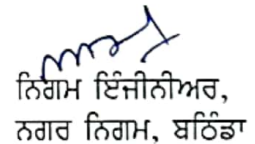 ਨਿਗਮ ਇੰਜੀਨੀਅਰ,
ਨਗਰ ਨਿਗਮ, ਬਠਿੰਡਾ